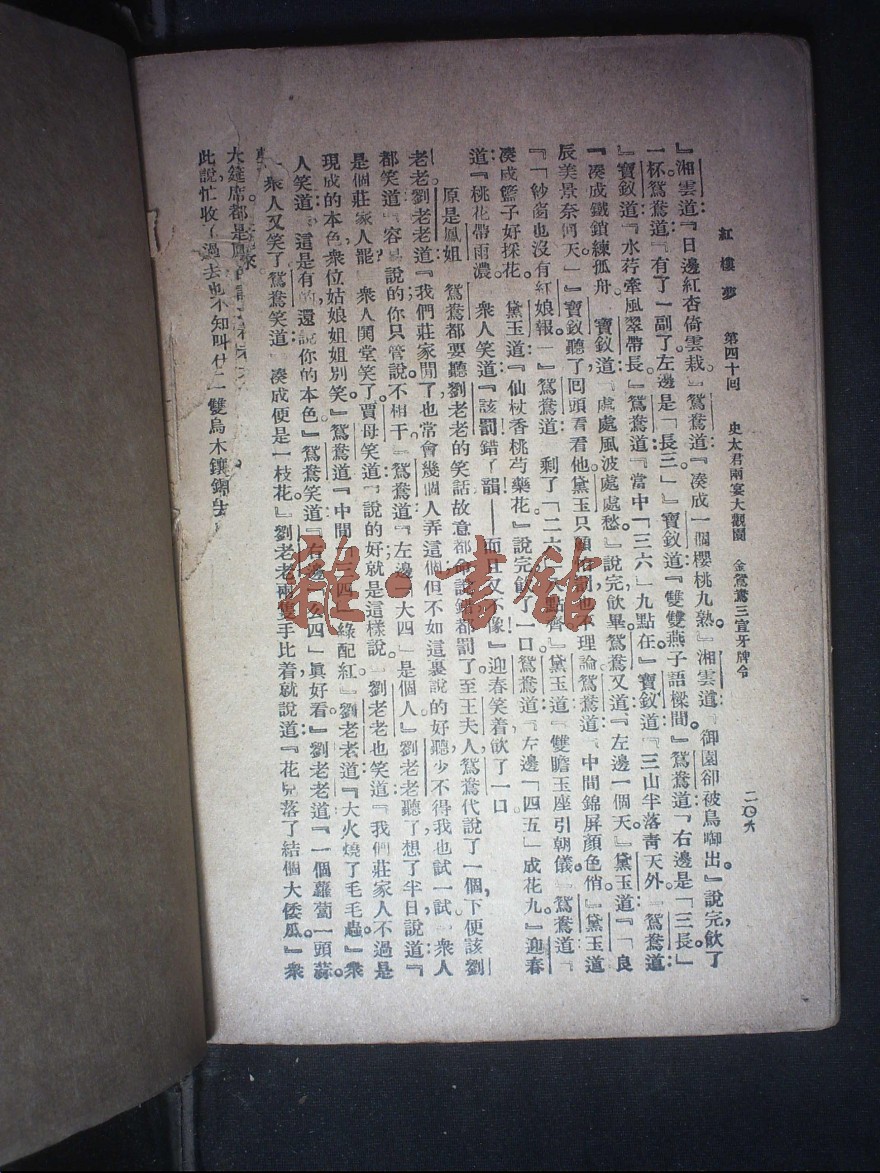 紅樓夢　第四十回　史太君兩宴大觀園　金鴛鴦三宣牙牌令　二〇六
』湘雲道：『日邊紅杏倚雲栽。』鴛鴦道：『湊成一個櫻桃九熟。』湘雲道：『御園卻被鳥啣出。』說完，飲了
一杯。鴛鴦道：『有了一副了。左邊是「長三。」』寶釵道：『雙雙燕子語樑間。』鴛鴦道：『右邊是「三長」
』寶釵道：『水荇牽風翠帶長。』鴛鴦道：『當中「三六」九點在。』寶釵道：『三山半落靑天外。』鴛鴦道
『湊成鐵鎖練孤舟。』寶釵道：『處處風波處處愁。』說完飲畢。鴛鴦又道：『左邊一個天。』黛玉道：『「良
辰美景奈何天」』寶釵聽了，回頭看看他，黛玉只顧也不理論。鴛鴦道：『中間錦屏顏色俏。』黛玉道
『「紗窗也沒有紅娘報」』鴛鴦道：『剩了「二六」八點齊。』黛玉道：『雙瞻玉座引朝儀。』鴛鴦道：『
湊成籃子好採花。』黛玉道：『仙杖香桃芍藥花。』說完，飲了一口。鴛鴦道：『左邊「四五」成花九。』迎春
道：『桃花帶雨濃。』衆人笑道：『該罰！錯了韻——而且又不像！』迎春笑着，飲了一口。
原是鳳姐　鴛鴦都要聽劉老老的笑話，故意都錯，都罰了。至王夫人，鴛鴦代說了一個，下便該劉
老老。劉老老道：『我們莊家閒了，也常會幾個人弄這個，但不如這裏說的好聽，少不得我也試一試。』衆人
都笑道：『容易說的，你只管說，不相干。』鴛鴦道：『左邊「大四」是個人。』劉老老聽了，想了半日，說道：『
是個莊家人罷？』衆人閧堂笑了。賈母笑道：『說的好，就是這樣說。』劉老老也笑道：『我們莊家人不過是
現成的本色，衆位姑娘姐姐別笑。』鴛鴦道：『中間「三四」綠配紅。』劉老老道：『大火燒了毛毛蟲。』衆
人笑道：『這是有的，還說你的本色。』鴛鴦笑道：『右邊「么四」眞好看。』劉老老道：『一個蘿蔔一頭蒜。
』衆人又笑了。鴛鴦笑道：『湊成便是一枝花。』劉老老兩隻手比着，就說道：『花兒落了結個大倭瓜。』衆
大筵席都是
此說，忙收了過去，也不知叫　一雙烏木鑲
雜·書館